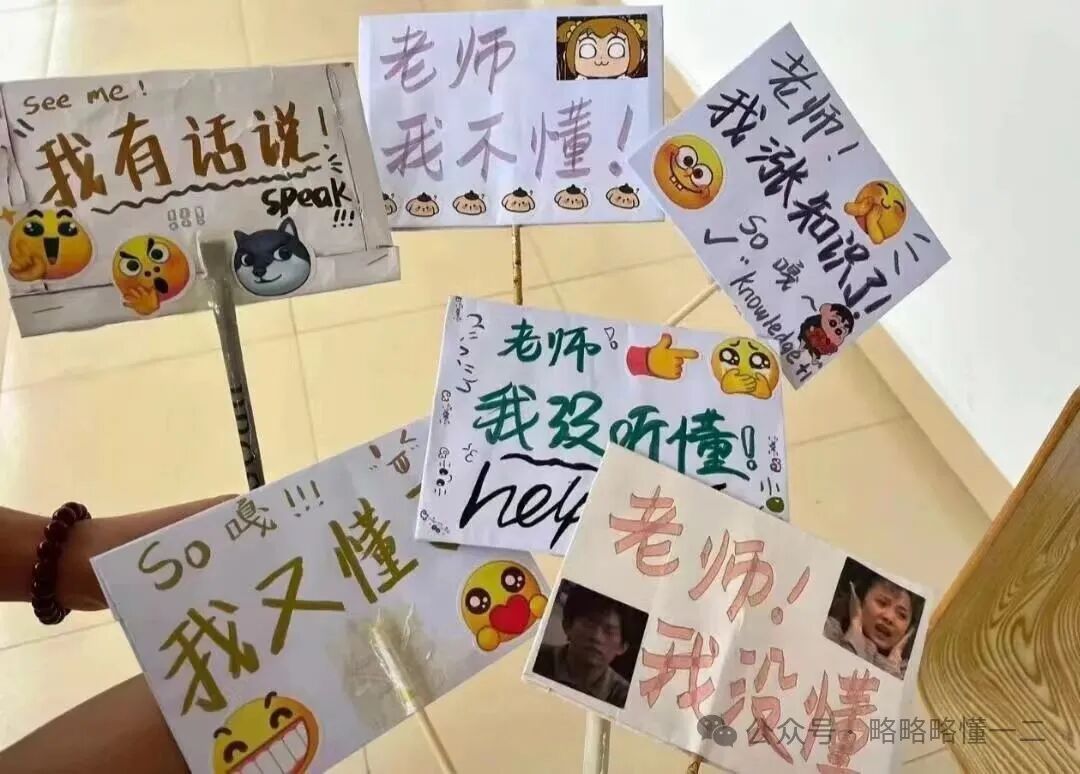 see me!
我有话说!
speak
!!!
老师
我不懂!
老师!
我涨知识了!
So 嘎~
"knowledge+1
老师
我没听懂!
help
So 嘎!!!
我又懂
老师!
我没懂
公众号·略略略懂一二